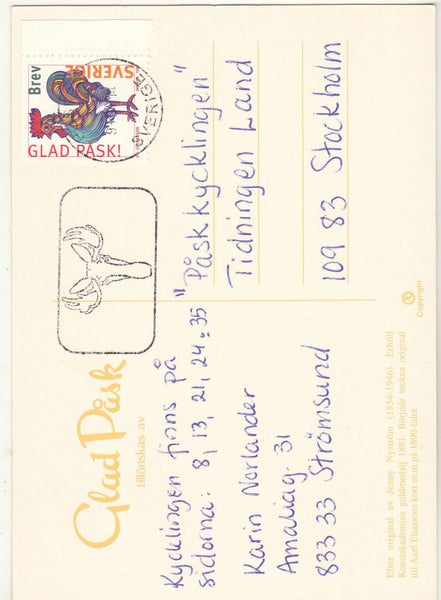 Glad Påsk
tillönskas av
Kycklingen finns på
sidorna: 8, 13, 21, 24 = 35
Karin Norlander
Amaliag. 31
833 33 Strömsund
Brev
SVERIGE
GLAD PÅSK!
SVERIGE
"Påskkycklingen"
Tidningen Land
109 83 Stockholm
Copyright
Efter original av Jenny Nyström (1854-1946). Erhöll
Konstakademins guldmedalj 1881. Började teckna original
till Axel Eliassons kort m.m på 1890-talet.